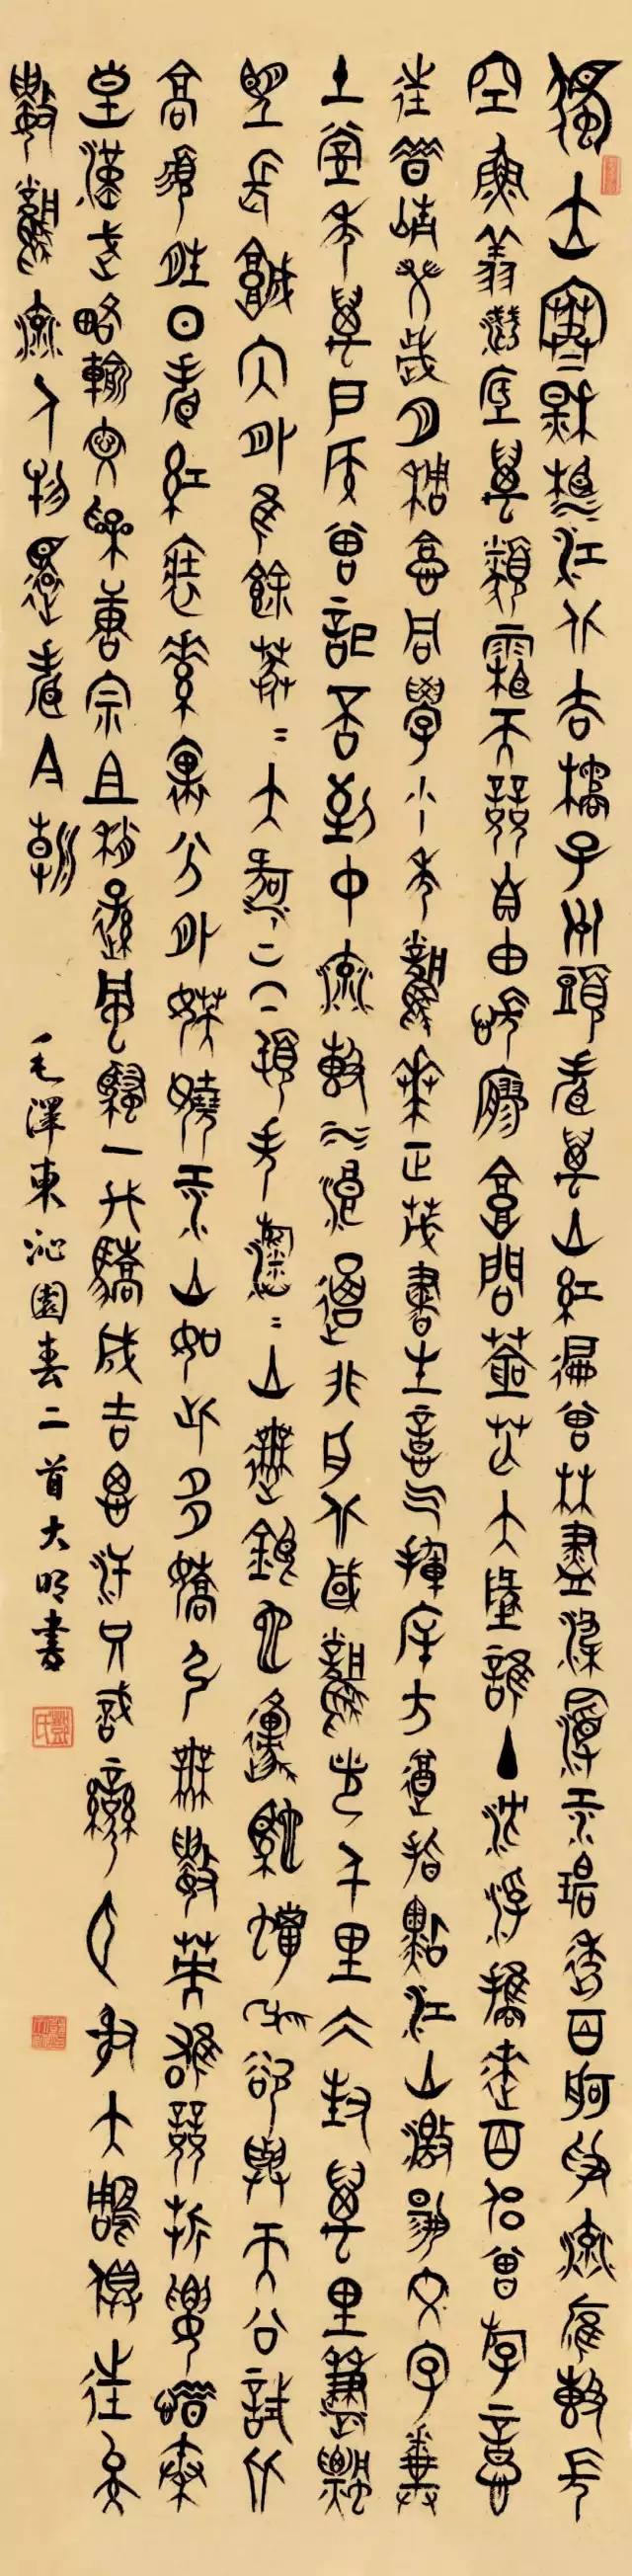 獨立寒秋湘江北去橘子州頭看萬山紅遍曾林盡染漫江碧透百舸爭流鷹擊長
空魚翔淺底萬類霜天競自由悵寥廓問蒼茫大地誰主沈浮攜來百侶曾游憶
往昔崢嶸歲月稠恰同學少年風華正茂書生意氣揮斥方遒指點江山激揚文字糞
土當年萬戶侯曾記否到中流擊水浪遏飛舟北國風光千里冰封萬里雪飄
望長城內外惟餘莽莽大河上下頓失滔滔山舞銀蛇原馳蠟象欲與天公試比
高須晴日看紅裝素裹分外妖嬈江山如此多嬌引無數英雄競折腰惜秦
皇漢武略輸文采唐宗宋祖稍遜風騷一代天驕成吉思汗只識彎弓射大鵰俱往矣
數風流人物還看今朝
毛澤東沁園春二首大明書